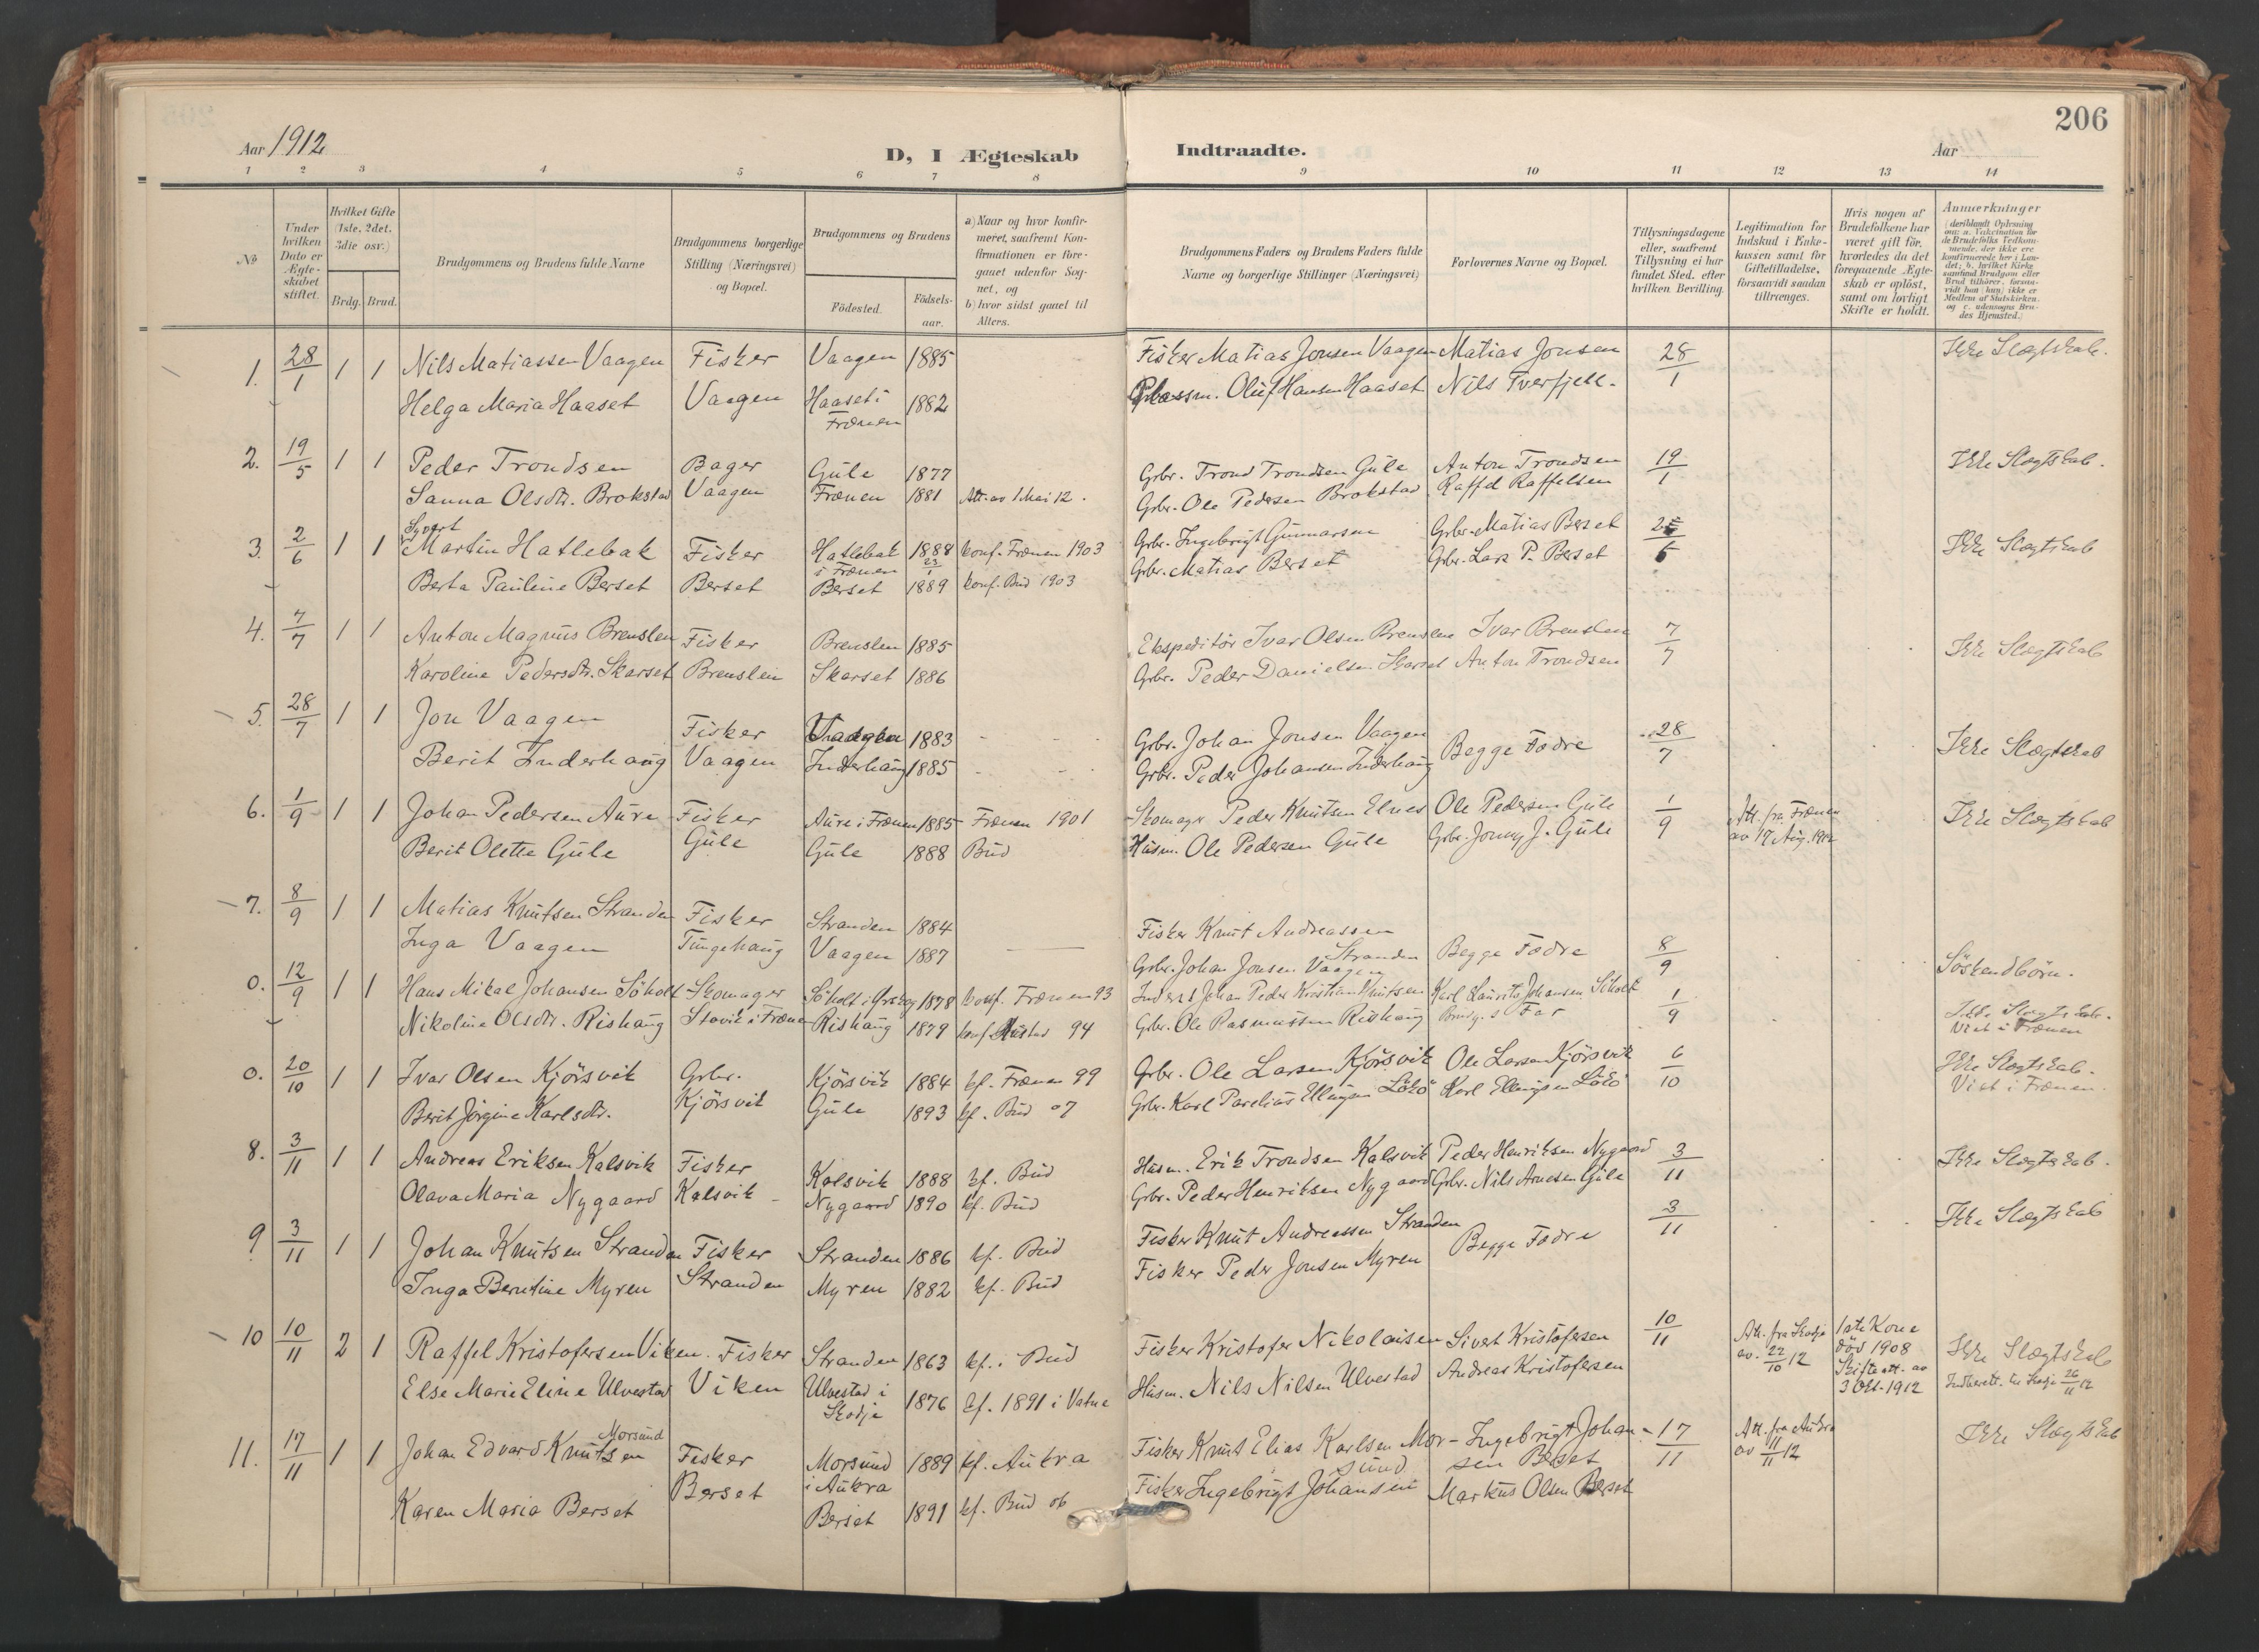 206
Aar 1912
D, I Ægteskab Indtraadte.
Aar
1 2 3 4 5 6 7 8 9 10 11 12 13 14
No
Under hvilken Dato er Ægteskabet stiftet.
Hvilket Gifte (1ste, 2det, 3die osv.)
Brdg. Brud.
Brudgommens og Brudens fulde Navne
Brudgommens borgerlige Stilling (Næringsvei) og Bopæl.
Brudgommens og Brudens
Fødested.
Fødselsaar.
a) Naar og hvor konfirmeret, saafremt Konfirmationen er foregaaet udenfor Sognet, og
b) hvor sidst gaaet til Alters.
Brudgommens Faders og Brudens Faders fulde Navne og borgerlige Stillinger (Næringsvei)
Forlovernes Navne og Bopæl.
Tillysningsdagene eller, saafremt Tillysning ei har fundet Sted, efter hvilken Bevilling.
Legitimation for Indskud i Enkekassen samt for Giftetilladelse, forsaavidt saadan tiltrænges.
Hvis nogen af Brudefolkene har været gift før, hvorledes da det foregaaende Ægteskab er opløst, samt om lovligt Skifte er holdt.
Anmærkninger
(deriblandt Oplysning om: a. Vakcination for de Brudefolks Vedkommende, der ikke ere konfirmerede her i Landet; b. hvilket Kirkesamfund Brudgom eller Brud tilhører, forsaavidt han (hun) ikke er Medlem af Statskirken, og c. udensogns Brudes Hjemsted.)
1. 28/1 1 1 Nils Matiassen Vaagen Fisker Vaagen 1885 Fisker Matias Jonsen Vaagen Matias Jonsen 28/1 Ikke Slægtskab.
Helga Maria Haaset Vaagen Haaset i Frænen 1882 Plassm. Oluf Hansen Haaset Nils Tverfjell.
2. 19/5 1 1 Peder Trondsen Bager Gule 1877 Grbr. Trond Trondsen Gule Anton Trondsen 19/1 Ikke Slægtskab.
Sanna Olsdtr. Brokstad Vaagen Frænen 1881 Att. av 1 Mai 12. Grbr. Ole Pedersen Brokstad Raffel Raffelsen
3. 2/6 1 1 Sivert Martin Hatlebak Fisker Hatlebak i Frænen 1888 Konf. Frænen 1903 Grbr. Ingebrigt Gunnarsen Grbr. Matias Berset Ikke Slægtskab
Berta Pauline Berset Berset Berset 23/1 1889 Konf. Bud 1903 Grbr. Matias Berset Grbr. Lars P. Berset
4. 7/7 1 1 Anton Magnus Brenslen Fisker Brenslen 1885 Ekspeditør Ivar Olsen Brenslen Ivar Brenslen 7/7 Ikke Slægtskab
Karoline Pedersdtr. Skarset Brenslen Skarset 1886 Grbr. Peder Danielsen Skarset Anton Trondsen
5. 28/7 1 1 Jon Vaagen Fisker Vaagen 1883 Grbr. Johan Jonsen Vaagen Begge Fædre 28/7 Ikke Slægtskab
Berit Inderhaug Vaagen Inderhaug 1885 Grbr. Peder Johansen Inderhaug
6. 1/9 1 1 Johan Pedersen Aure Fisker Aure i Frænen 1885 Frænen 1901 Skomager Peder Knutsen Elnes Ole Pedersen Gule 1/9 Att. fra Frænen av 17 Aug. 1912 Ikke Slægtskab
Berit Olette Gule Gule Gule 1888 Bud Husm. Ole Pedersen Gule Grbr. Jonny J. Gule
7. 8/9 1 1 Matias Knutsen Stranden Fisker Stranden 1884 Fisker Knut Andreassen Stranden Begge Fædre 8/9 Söskendbörn.
Inga Vaagen Tungehaug Vaagen 1887 Grbr. Johan Jonsen Vaagen
0. 12/9 1 1 Hans Mikal Johansen Söholt Skomager Söholt i Ørskog 1878 Konf. Frænen 93 Inderst Johan Peder Kristian Knutsen Karl Laurits Johansen Söholt 1/9 Ikke Slægtskab.
Nikoline Olsdtr. Rishaug Stavik i Frænen Rishaug 1879 Konf. Hustad 94 Grbr. Ole Rasmussen Rishaug Brudg.s Far Viet i Frænen
0. 20/10 1 1 Ivar Olsen Kjörsvik Grbr. Kjörsvik 1884 kf. Frænen 99 Grbr. Ole Larsen Kjörsvik Ole Larsen Kjörsvik 6/10 Ikke Slægtskab.
Berit Jörgine Karlsdtr. Kjörsvik Gule 1893 kf. Bud 07 Grbr. Karl Parelius Ellingsen Lökö Karl Ellingsen Lökö Viet i Frænen
8. 3/11 1 1 Andreas Eriksen Kalsvik Fisker Kalsvik 1888 kf. Bud Husm. Erik Trondsen Kalsvik Peder Henriksen Nygaard 3/11 Ikke Slægtskab.
Olava Maria Nygaard Kalsvik Nygaard 1890 kf. Bud Grbr. Peder Henriksen Nygaard Grbr. Nils Arnesen Gule
9. 3/11 1 1 Johan Knutsen Stranden Fisker Stranden 1886 kf. Bud Fisker Knut Andreassen Stranden Begge Fædre 3/11 Ikke Slægtskab
Inga Berntine Myren Stranden Myren 1882 kf. Bud Fisker Peder Jonsen Myren
10 10/11 2 1 Raffel Kristofersen Viken. Fisker Stranden 1863 kf. i Bud Fisker Kristofer Nikolaisen Sivert Kristofersen 10/11 Att. fra Skodje av. 22/10 12 1ste Kone död 1908 Skifteatt. av 3 Okt. 1912 Ikke Slægtskab
Else Marie Eline Ulvestad Viken Ulvestad i Skodje 1876 kf. 1891 i Vatne Husm. Nils Nilsen Ulvestad Andreas Kristofersen Indberett. til Skodje 26/11 12
11. 17/11 1 1 Johan Edvard Knutsen Morsund Fisker Morsund i Aukra 1889 kf. Aukra Fisker Knut Elias Karlsen Morsund Ingebrigt Johansen Berset 17/11 Att. fra Aukra av 11/11 12 Ikke Slægtskab
Karen Maria Berset Berset Berset 1891 kf. Bud 06 Fisker Ingebrigt Johansen Markus Olsen Berset